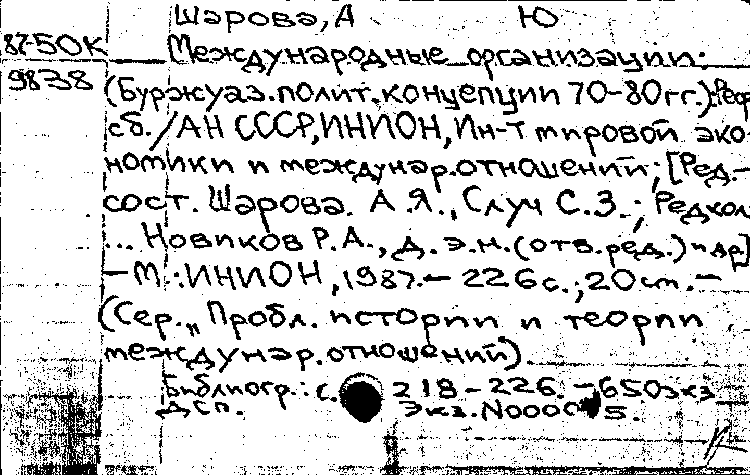 Шарова, А Ю
87-50К Международные организации:
9838 (Буржуаз. полит. концепции 70-80 гг.): Реф.
сб. / АН СССР, ИНИОН, Ин-т мировой эко-
номики и междунар. отношений; [Ред.-
сост. Шарова. А.Я., Случ С.З.; Редкол.
... Новиков Р.А., д.э.н. (отв. ред.) и др.]
— М.: ИНИОН, 1987. — 226 с.; 20 см. —
(Сер. „Пробл. истории и теории
междунар. отношений).
Библиогр.: с. 218-226. — 650 экз
Дсп. Экз. N0000 5.